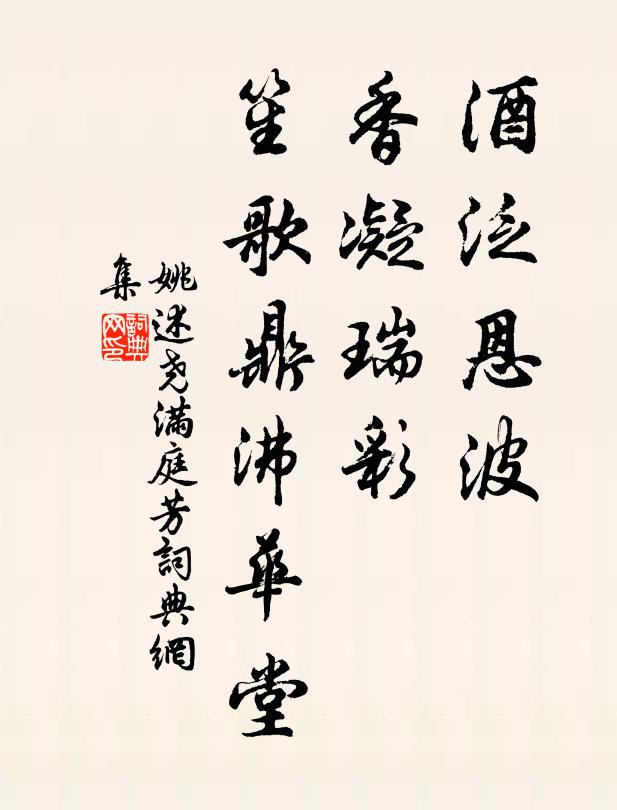 酒泛恩波
香凝瑞彩
笙歌鼎沸華堂
姚述尧滿庭芳詞典網
集
詞典网印